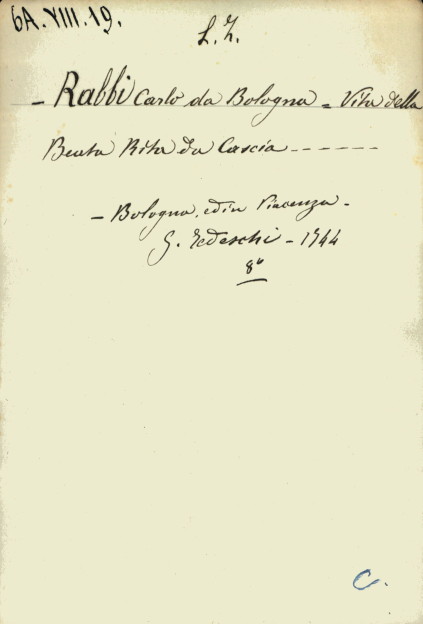 6A.VIII.19.
L. Z.
- Rabbi Carlo da Bologna = Vita della
Beata Rita da Cascia - - - - - -
- Bologna, ed in Piacenza -
G. Tedeschi - 1744
8°
C.